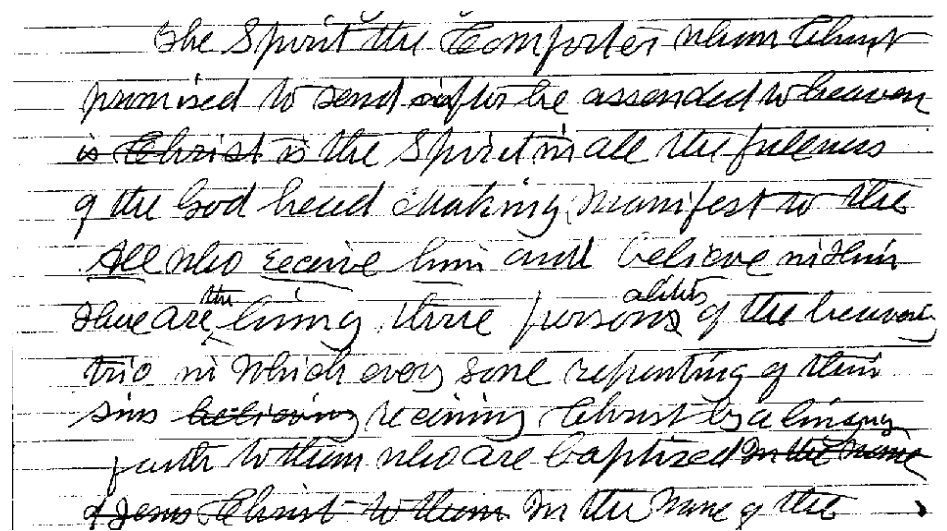 The Spirit the Comforter whom Christ
promised to send after he assended to heaven
is Christ is the Spirit in all the fulness
of the God head making manifest to the
All who receive him and believe in him
There are the living three personsalities of the heavenly
trio in which every soul repenting of their
sins believing receiving Christ by a living
faith to them who are baptized in the name
of Jesus Christ to them In the Name of the